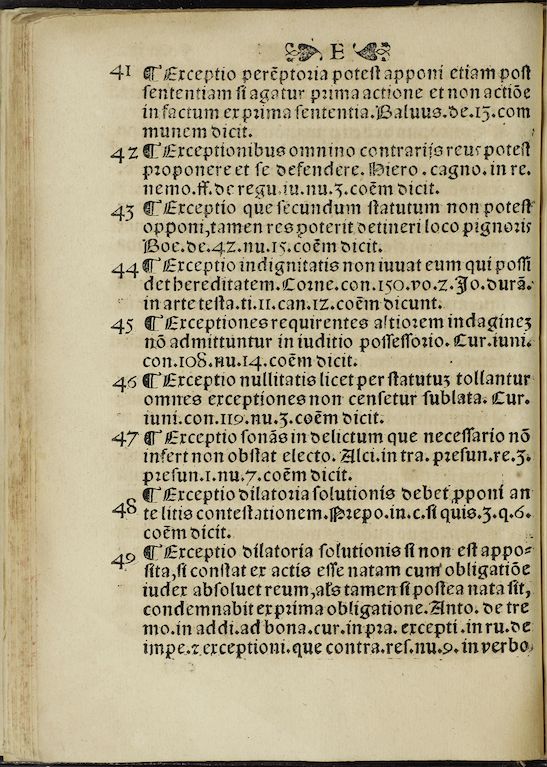 E
41 ¶ Exceptio perēptoria potest apponi etiam post
sententiam si agatur prima actione et non actiōe
in factum ex prima sententia. Baluus. de. 15. com
munem dicit.
42 ¶ Exceptionibus omnino contrarijs reus potest
proponere et se defendere. Hiero. cagno. in re.
nemo. ff. de regu. iu. nu. 3. coēm dicit.
43 ¶ Exceptio que secundum statutum non potest
opponi, tamen res poterit detineri loco pignoris
Boe. de. 42. nu. 15. coēm dicit.
44 ¶ Exceptio indignitatis non iuuat eum qui possi
det hereditatem. Corne. con. 150. vo. 2. Jo. durā.
in arte testa. ti. 11. can. 12. coēm dicunt.
45 ¶ Exceptiones requirentes altiorem indagineꝫ
nō admittuntur in iuditio possessorio. Cur. iuni.
con. 108. nu. 14. coēm dicit.
46 ¶ Exceptio nullitatis licet per statutuꝫ tollantur
omnes exceptiones non censetur sublata. Cur.
iuni. con. 119. nu. 3. coēm dicit.
47 ¶ Exceptio sonās in delictum que necessario nō
infert non obstat electo. Alci. in tra. presun. re. 3.
presun. 1. nu. 7. coēm dicit.
¶ Exceptio dilatoria solutionis debet ꝓponi an
48 te litis contestationem. Prepo. in. c. si quis. 3. q. 6.
coēm dicit.
49 ¶ Exceptio dilatoria solutionis si non est appo-
sita, si constat ex actis esse natam cum obligatiōe
iudex absoluet reum, als tamen si postea nata sit,
condemnabit ex prima obligatione. Anto. de tre
mo. in addi. ad bona. cur. in pra. excepti. in ru. de
impe. ⁊ exceptioni. que contra. res. nu. 9. in verbo